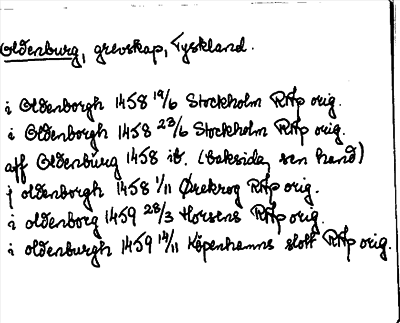 Oldenburg, grevskap, Tyskland.
i Oldenborgh 1458 19/6 Stockholm RAp orig.
i Oldenborgh 1458 23/6 Stockholm RAp orig.
aff Oldenburg 1458 ib. (baksida, sen hand)
j oldenborgh 1458 1/11 Ørekrog RAp orig.
i oldenborg 1459 28/3 Horsens RAp orig.
i oldenburgh 1459 14/11 Köpenhamns slott RAp orig.